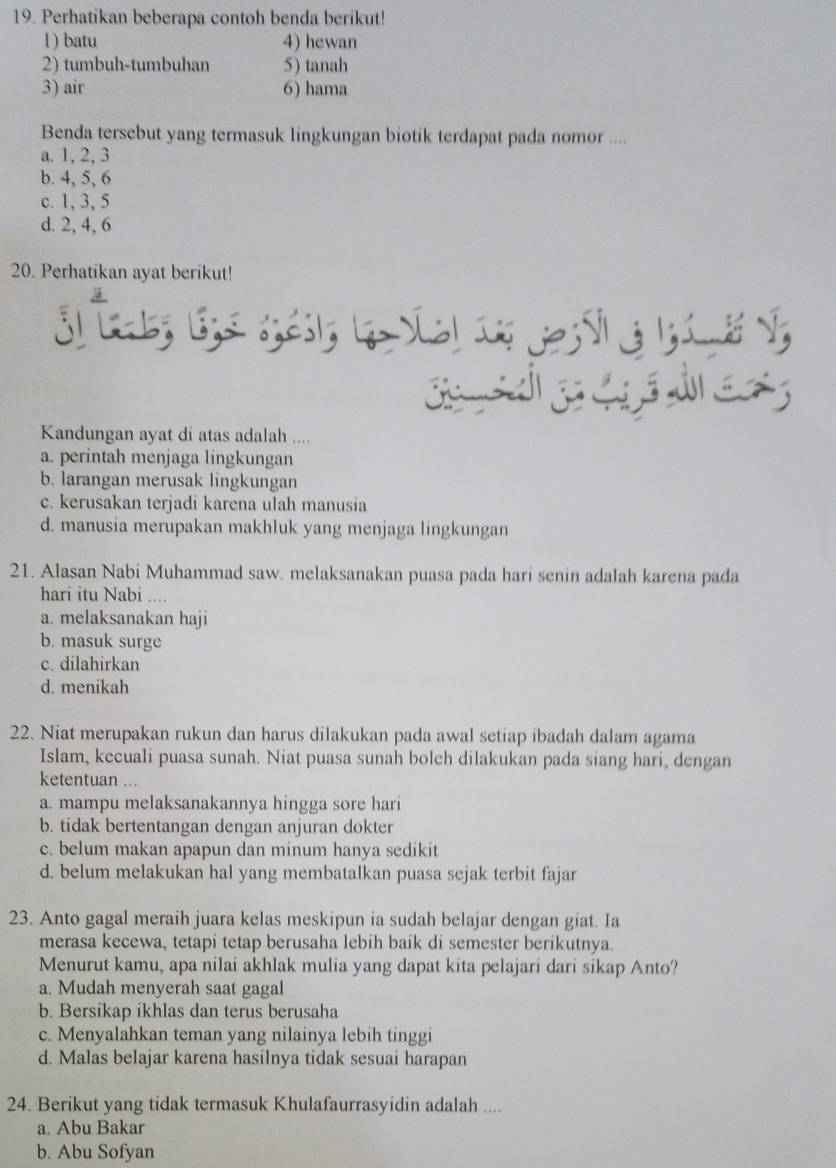 19. Perhatikan beberapa contoh benda berikut!
1) batu 4) hewan
2) tumbuh-tumbuhan 5) tanah
3) air 6) hama
Benda tersebut yang termasuk lingkungan biotik terdapat pada nomor ....
a. 1, 2, 3
b. 4, 5, 6
c. 1, 3, 5
d. 2, 4, 6
20. Perhatikan ayat berikut!
وَلَا تُفْسِدُوْا فِى الْاَرْضِ بَعْدَ اِصْلَاحِهَا وَادْعُوْهُ خَوْفًا وَّطَمَعًاۗ اِنَّ
رَحْمَتَ اللّٰهِ قَرِيْبٌ مِّنَ الْمُحْسِنِيْنَ
Kandungan ayat di atas adalah ....
a. perintah menjaga lingkungan
b. larangan merusak lingkungan
c. kerusakan terjadi karena ulah manusia
d. manusia merupakan makhluk yang menjaga lingkungan
21. Alasan Nabi Muhammad saw. melaksanakan puasa pada hari senin adalah karena pada
hari itu Nabi ....
a. melaksanakan haji
b. masuk surge
c. dilahirkan
d. menikah
22. Niat merupakan rukun dan harus dilakukan pada awal setiap ibadah dalam agama
Islam, kecuali puasa sunah. Niat puasa sunah boleh dilakukan pada siang hari, dengan
ketentuan ...
a. mampu melaksanakannya hingga sore hari
b. tidak bertentangan dengan anjuran dokter
c. belum makan apapun dan minum hanya sedikit
d. belum melakukan hal yang membatalkan puasa sejak terbit fajar
23. Anto gagal meraih juara kelas meskipun ia sudah belajar dengan giat. Ia
merasa kecewa, tetapi tetap berusaha lebih baik di semester berikutnya.
Menurut kamu, apa nilai akhlak mulia yang dapat kita pelajari dari sikap Anto?
a. Mudah menyerah saat gagal
b. Bersikap ikhlas dan terus berusaha
c. Menyalahkan teman yang nilainya lebih tinggi
d. Malas belajar karena hasilnya tidak sesuai harapan
24. Berikut yang tidak termasuk Khulafaurrasyidin adalah ....
a. Abu Bakar
b. Abu Sofyan